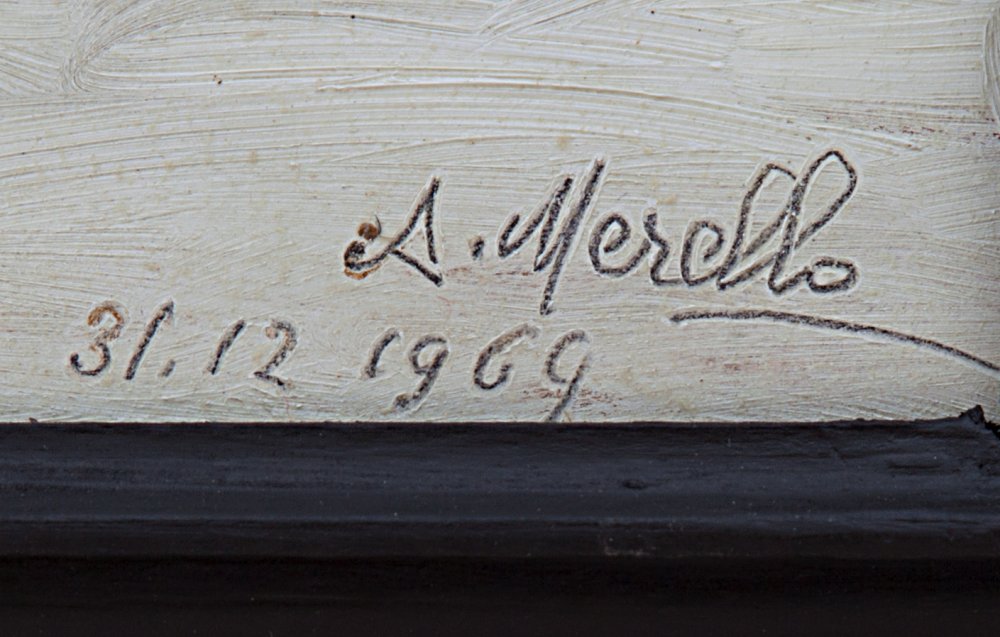 A. Merello
31.12 1969